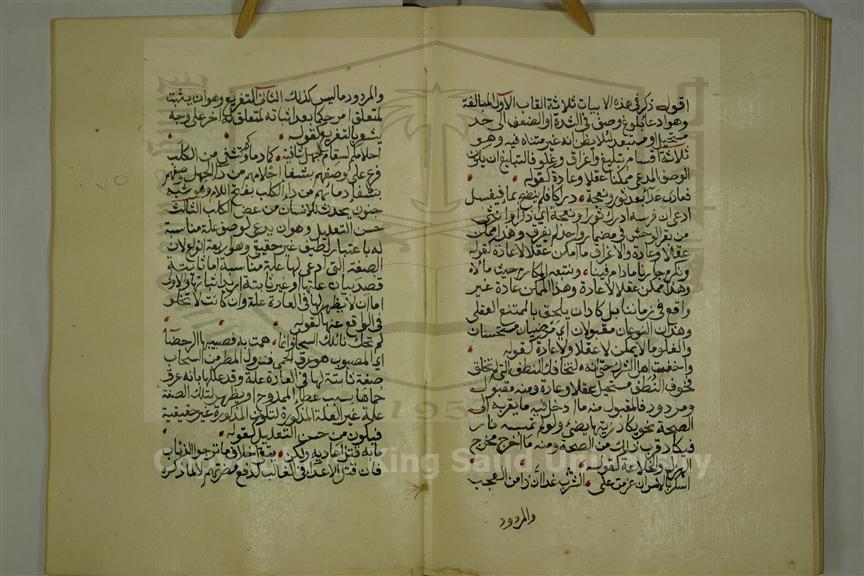 اقول ذكر في هذه الابيات ثلاثة القاب الاول المبالغة
وهو ادعاء بلوغ وصف في الشدة او الضعف الى حد
مستحيل او مستبعد لئلا يظن انه غير متناه فيه وهو
ثلاثة اقسام تبليغ واغراق وغلو فالتبليغ ان يكون
الوصف المدعى ممكنا عقلا وعادة كقوله
فعادى عداء بين ثور ونعجة دراكا فلم ينضح بماء فيغسل
ادعى ان فرسه ادرك ثورا ونعجة اي ذكرا وانثى
من بقر الوحش في مضمار واحد لم يعرق وهذا ممكن
عقلا وعادة والاغراق ما امكن عقلا لا عادة كقوله
ونكرم جارنا ما دام فينا ونتبعه الكرامة حيث مالا
وهذا ممكن عقلا لا عادة وهذا الممكن عادة غير
واقع في زماننا بل كاد ان يلحق بالممتنع العقلي
وهذان النوعان مقبولان اي مرضيان مستحسنان
والغلو ما لا يمكن لا عقلا ولا عادة كقوله
واخفت اهل الشرك حتى انه لتخافك النطف التي لم تخلق
فخوف النطف مستحيل عقلا وعادة ومنه مقبول
ومردود فالمقبول منه ما ادخل فيه ما يقربه الى
الصحة نحو يكاد زيتها يضئ ولو لم تمسسه نار
فيكاد قرب ذلك من الصحة ومنه ما اخرج مخرج
الهزل والخلاعة كقوله
اسكر بالامس ان عزمت على الشرب غدا ان ذا من العجب
والمردود
والمردود ما ليس كذلك الثاني التفريع وهو ان يثبت
لمتعلق امر حكم بعد اثباته لمتعلق له اخر على وجه
يشعر بالتفريع كقوله
احلامكم لسقام الجهل شافية كما دماؤكم تشفي من الكلب
فرع على وصفهم بشفاء احلامهم من داء الجهل وصفهم
بشفاء دمائهم من داء الكلب بفتح اللام وهو شبه
جنون يحدث للانسان من عض الكلب الثالث
حسن التعليل وهو ان يدعى لوصف علة مناسبة
له باعتبار لطيف غير حقيقي وهو اربعة انواع لان
الصفة التي ادعى لها علة مناسبة اما ثابتة
قصد بيان علتها او غير ثابتة اريد اثباتها والاولى
اما ان لا يظهر لها في العادة علة وان كانت لا تخلو
في الواقع عنها كقوله
لم تحك نائلك السحاب وانما حمت به فصبيبها الرحضاء
اي المصبوب هو عرق الحمى فنزول المطر من السحاب
صفة ثابتة لها في العادة علة وقد عللها بانه عرق
حماها بسبب عطاء الممدوح او يظهر لتلك الصفة
علة غير العلة المذكورة لتكون المذكورة غير حقيقية
فيكون من حسن التعليل كقوله
ما به قتل اعاديه ولكن يتقي اخلاف ما ترجو الذئاب
فان قتل الاعداء في الغالب لدفع مضرتهم لا لما ذكره
Copyright © King Saud University
1957